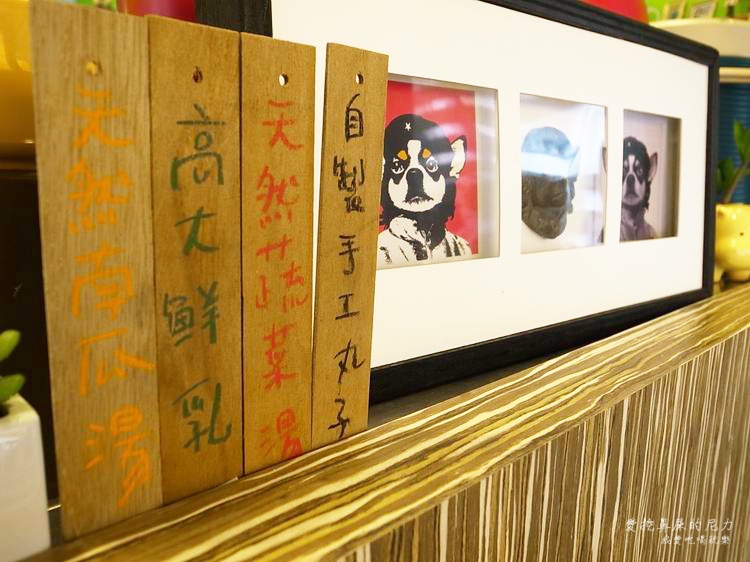 天然南瓜湯
高大鮮乳
天然蔬菜湯
自製手工丸子
愛挖鼻屎的尼力
感愛吃喝玩樂